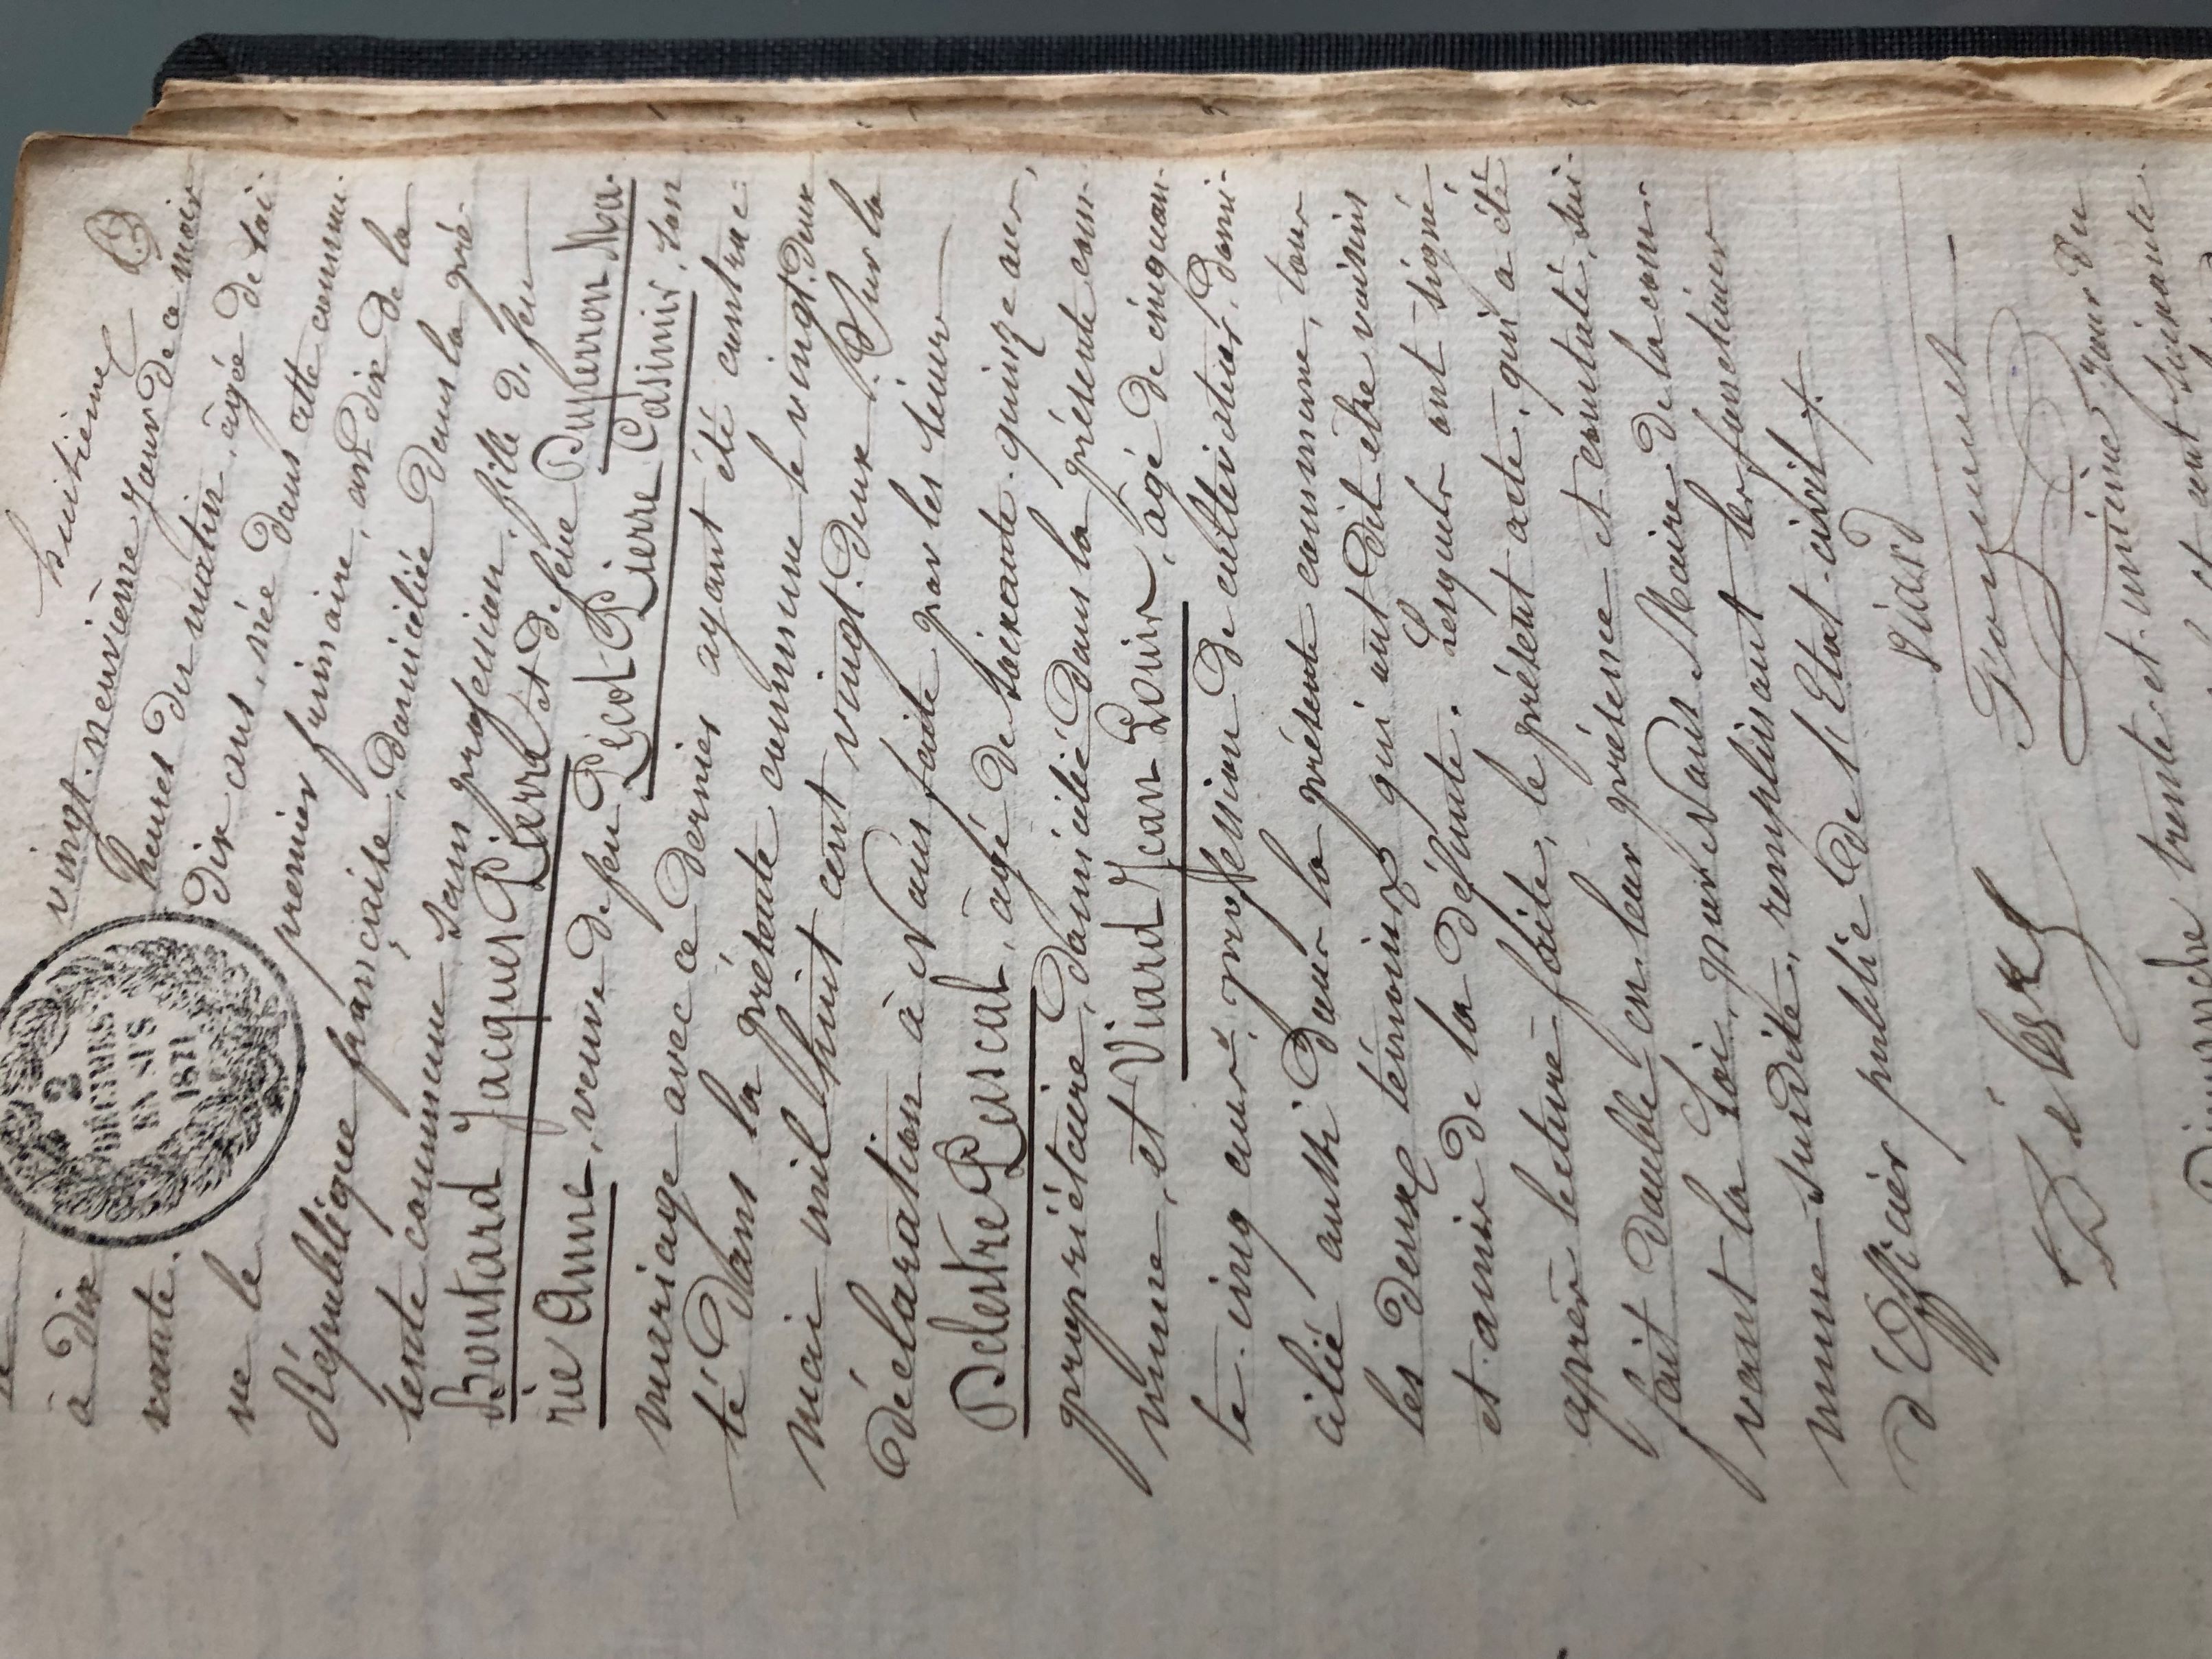 huitième
vingt-neuvième jour de ce mois
à dix heures du matin, âgée de soi-
xante-dix ans, née dans cette commu-
ne le premier frimaire, an dix de la
République française, domiciliée dans la pré-
sente commune, sans profession, fille de feu
Boutard Jacques Pierre et de feue Duperron Ma-
rie Anne, veuve de feu Picot Pierre Casimir, son
mariage avec ce dernier ayant été contrac-
té dans la présente commune le vingt-deux
mai mil huit cent vingt-deux. Sur la
déclaration à Nous faite par les sieurs
Delestre Pascal, âgé de soixante-quinze ans,
propriétaire, domicilié dans la présente com-
mune, et Viard Jean Louis, âgé de cinquan-
te-cinq ans, profession de cultivateur, domi-
cilié aussi dans la présente commune, tous
les deux témoins qui ont dit être voisins
et amis de la défunte. Lesquels ont signé
après lecture faite, le présent acte, qui a été
fait double en leur présence et constaté, sui-
vant la Loi, par Nous Maire de la com-
mune susdite, remplissant les fonctions
d'Officier public de l'Etat-civil
viard
trente-et-unième jour du
Dimanche
cent soixante
2
DÉCIMES
EN SUS
1871